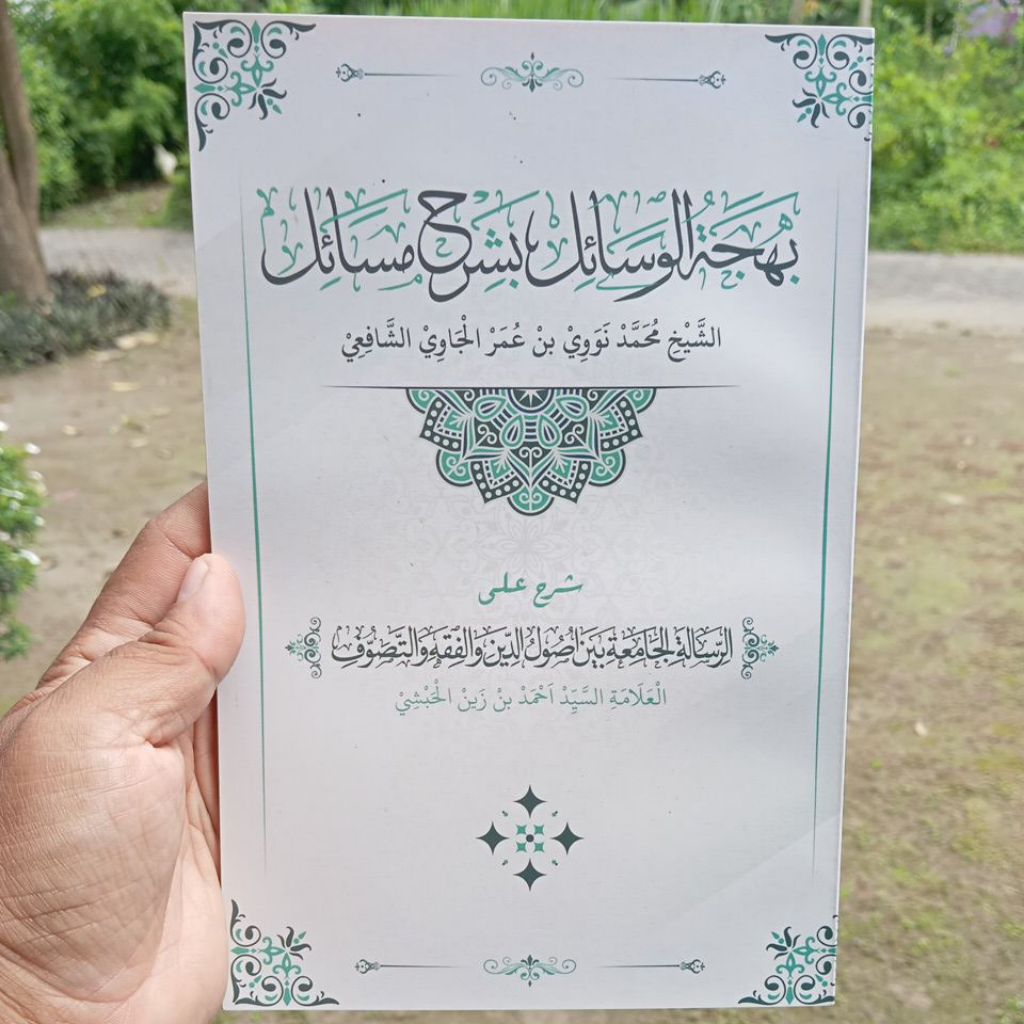 بهجة الوسائل بشرح مسائل
الشَّيْخِ مُحَمَّدْ نَوَوِيْ بنْ عُمَرْ الْجَاوِيْ الشَّافِعِيْ
شرح على
الرسالة الجامعة بين أصول الدين والفقه والتصوف
الْعَلَامَةِ السَّيِّدْ اَحْمَدْ بنْ زَيْنْ الْحَبْشِيْ